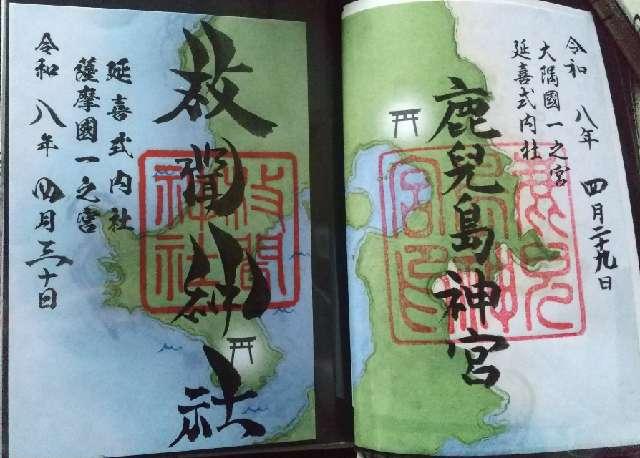 令和八年四月二十九日
大隅國一之宮
延喜式内社
鹿兒島神宮
枚聞神社
枚聞
神社
延喜式内社
薩摩國一之宮
令和八年四月三十日